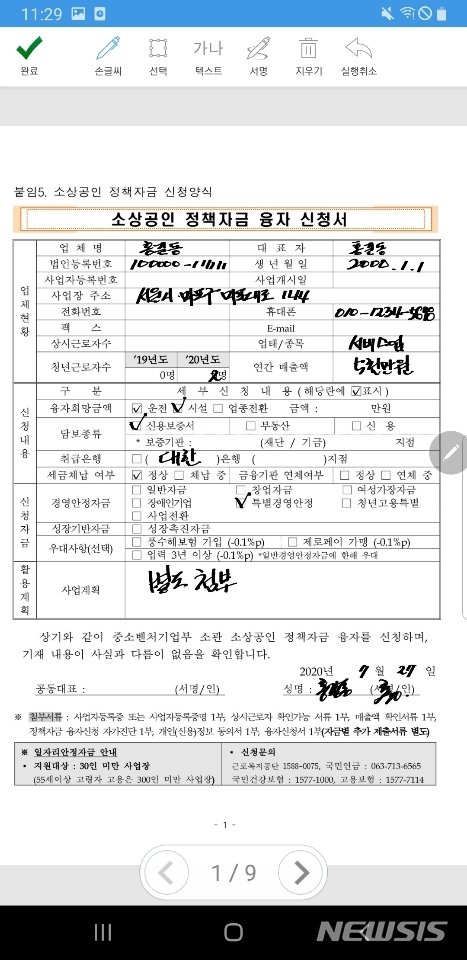 11:29
완료
손글씨
선택
가나
텍스트
서명
지우기
실행취소
붙임5. 소상공인 정책자금 신청양식
소상공인 정책자금 융자 신청서
업체현황
업 체 명 홍길동 대 표 자 홍길동
법인등록번호 100000-11111 생 년 월 일 2000.1.1
사업자등록번호 사업개시일
사업장 주소 서울시 마포구 마포대로 144
전화번호 휴대폰 010-1234-5678
팩 스 E-mail
상시근로자수 업태/종목 서비스업
청년근로자수 '19년도 '20년도 연간 매출액 5천만원
0명 2명
신청내용
구 분 세 부 신 청 내 용 (해당란에 ☑표시)
융자희망금액 ☑ 운전 ☑ 시설 □ 업종전환 금액 : 만원
담보종류 ☑ 신용보증서 □ 부동산 □ 신 용
* 보증기관 : (재단 / 기금) 지점
취급은행 □ ( 대한 )은행 ( )지점
세금체납 여부 ☑ 정상 □ 체납 중 금융기관 연체여부 □ 정상 □ 연체 중
신청자금
경영안정자금 □ 일반자금 □ 창업자금 □ 여성가장자금
□ 장애인기업 ☑ 특별경영안정 □ 청년고용특별
□ 사업전환
성장기반자금 □ 성장촉진자금
우대사항(선택) □ 풍수해보험 가입 (-0.1%p) □ 제로페이 가맹 (-0.1%p)
□ 업력 3년 이상 (-0.1%p) *일반경영안정자금에 한해 우대
활용계획
사업계획 별도 첨부
상기와 같이 중소벤처기업부 소관 소상공인 정책자금 융자를 신청하며,
기재 내용이 사실과 다름이 없음을 확인합니다.
2020년 7 월 27 일
공동대표 : (서명/인) 성명 : 홍길동 (서명/인)
※ 첨부서류 : 사업자등록증 또는 사업자등록증명 1부, 상시근로자 확인가능 서류 1부, 매출액 확인서류 1부,
정책자금 융자신청 자가진단 1부, 개인(신용)정보 동의서 1부, 융자신청서 1부(자금별 추가 제출서류 별도)
※ 일자리안정자금 안내
• 지원대상 : 30인 미만 사업장
(55세이상 고령자 고용은 300인 미만 사업장)
• 신청문의
근로복지공단 1588-0075, 국민연금 : 063-713-6565
국민건강보험 : 1577-1000, 고용보험 : 1577-7114
- 1 -
1 / 9
NEWSIS